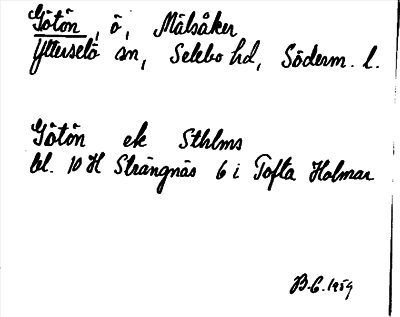 Götön, ö, Mälsåker
Ytterselö sn, Selebo hd, Söderm. l.
Götön ek Sthlms
bl. 10 H Strängnäs 6 i Tofta Holmar
B.G. 1959